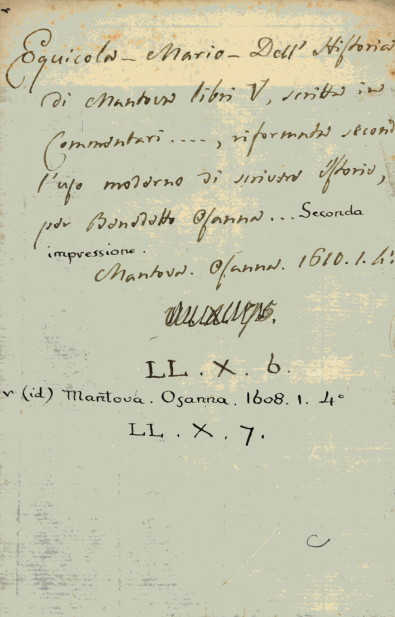 Equicola - Mario - Dell' Historia
di Mantova libri V, scritta in
Commentari ...., riformata second
l'uso moderno di scrivere Istorie,
per Benedetto Osanna ... Seconda
impressione.
Mantova. Osanna. 1610. 1. 4°
LL . X . 6.
(id) Mantova. Osanna. 1608. 1. 4°
LL . X . 7.